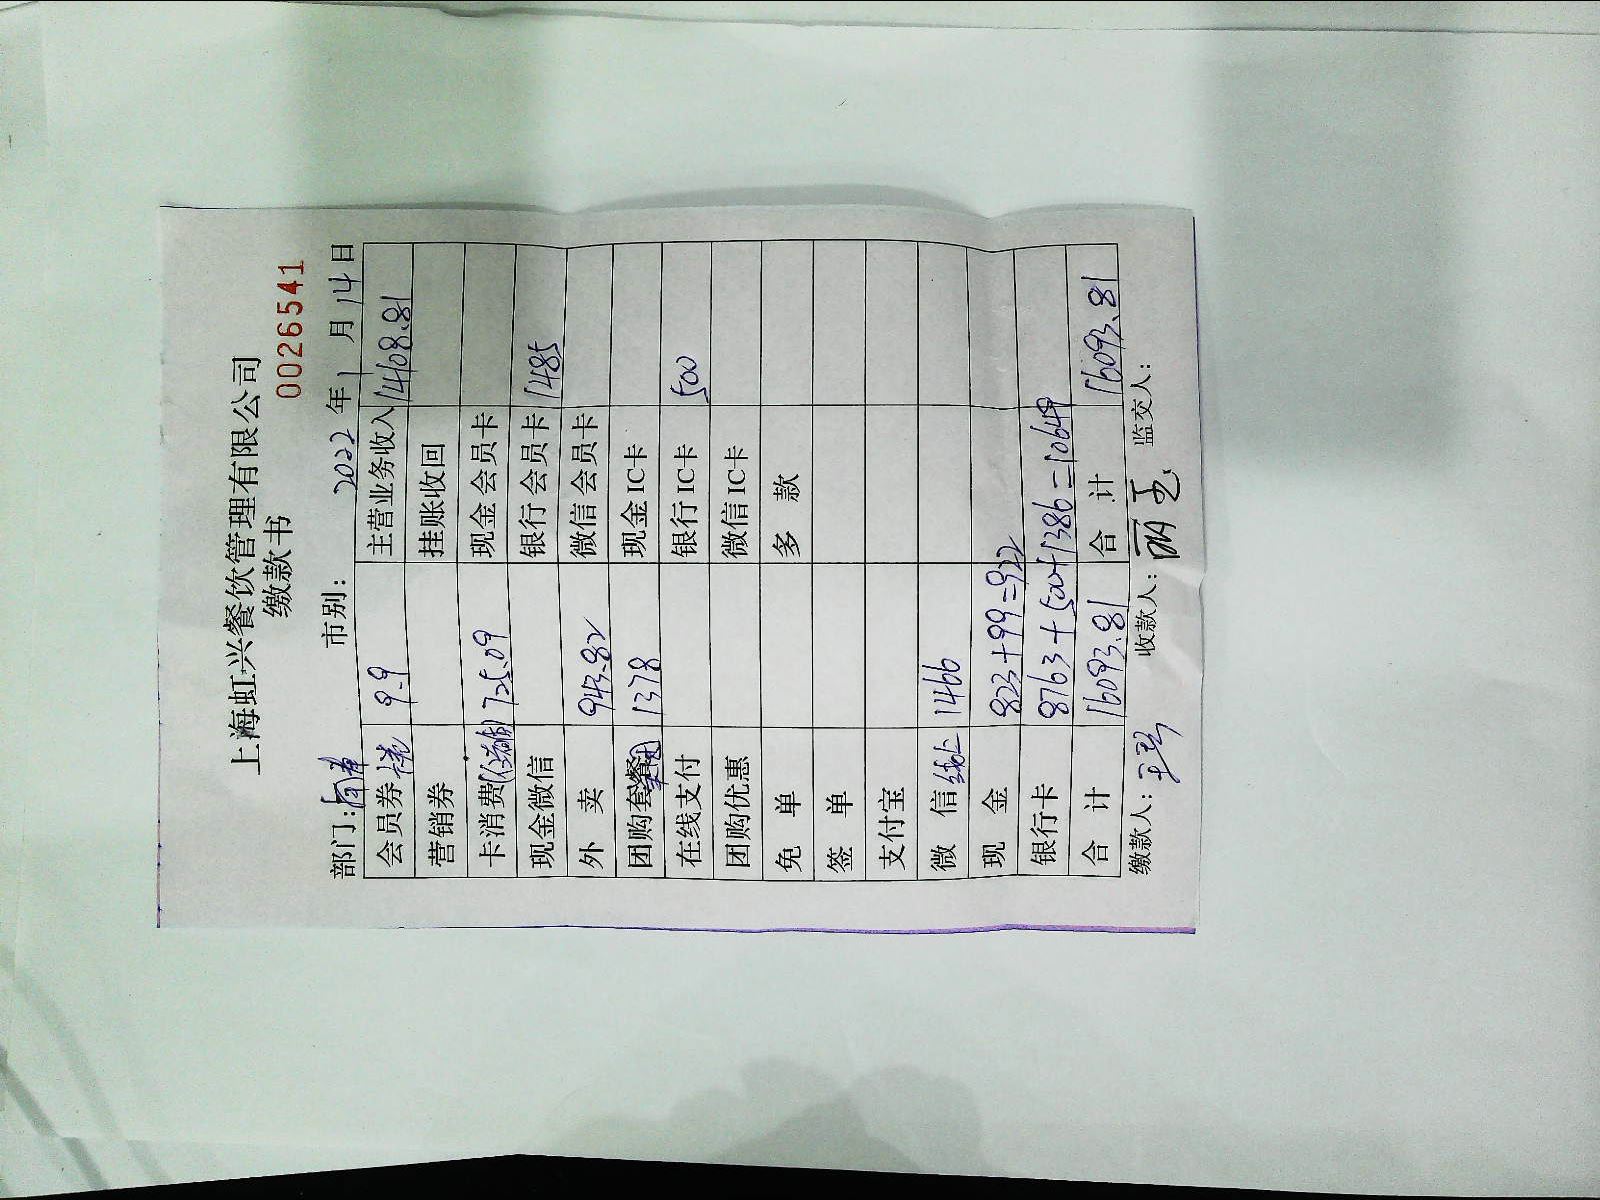 上海虹兴餐饮管理有限公司
缴款书
0026541
部门: 市别: 2022年1月14日
会员券 9.9 主营业务收入 14108.81
营销券 挂账收回
卡消费 725.09 现金会员卡
现金微信 银行会员卡 1485
外卖 943.82 微信会员卡
团购套餐 1378 现金IC卡
在线支付 银行IC卡 500
团购优惠 微信IC卡
免单 多款
签单
支付宝
微信 线上 1466
现金 823+99=922
银行卡 8763+500+1386=10649
合计 16093.81 合计 16093.81
缴款人: 收款人: 监交人: